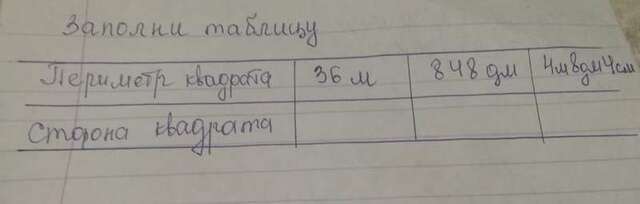 Заполни таблицу
Периметр квадрата 36 м 848 дм 4м8дм4см
Сторона квадрата